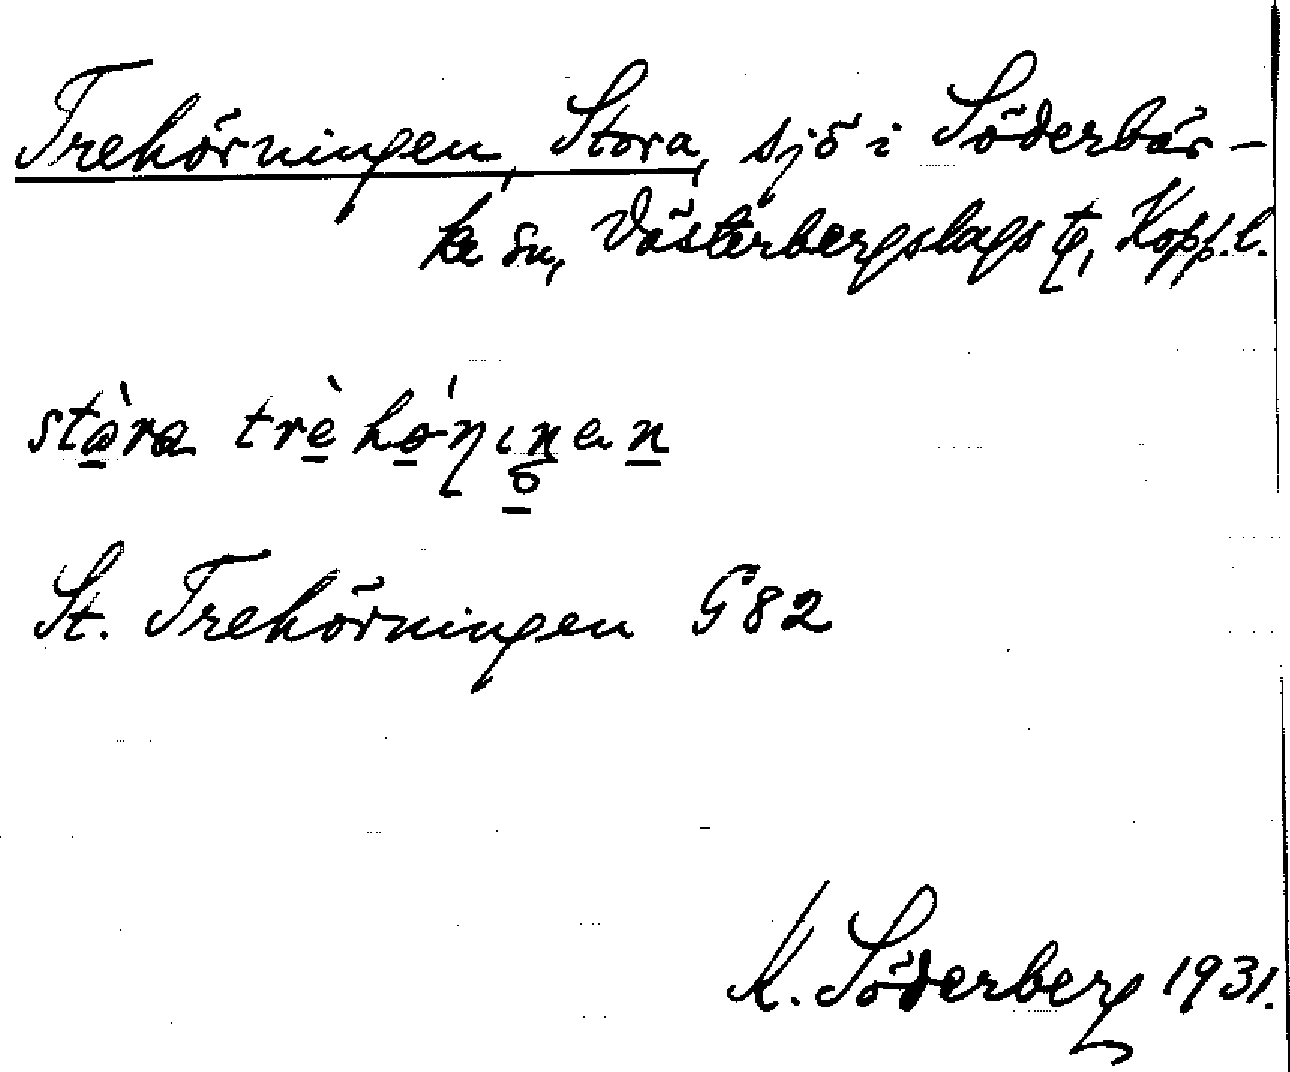 Trehörningen, Stora, sjö i Söderbär-
ke sn, Västerbergslags t, Kopp.l.
stòra trèhǿɳıŋan
St. Trehörningen G82
K. Söderberg 1931.